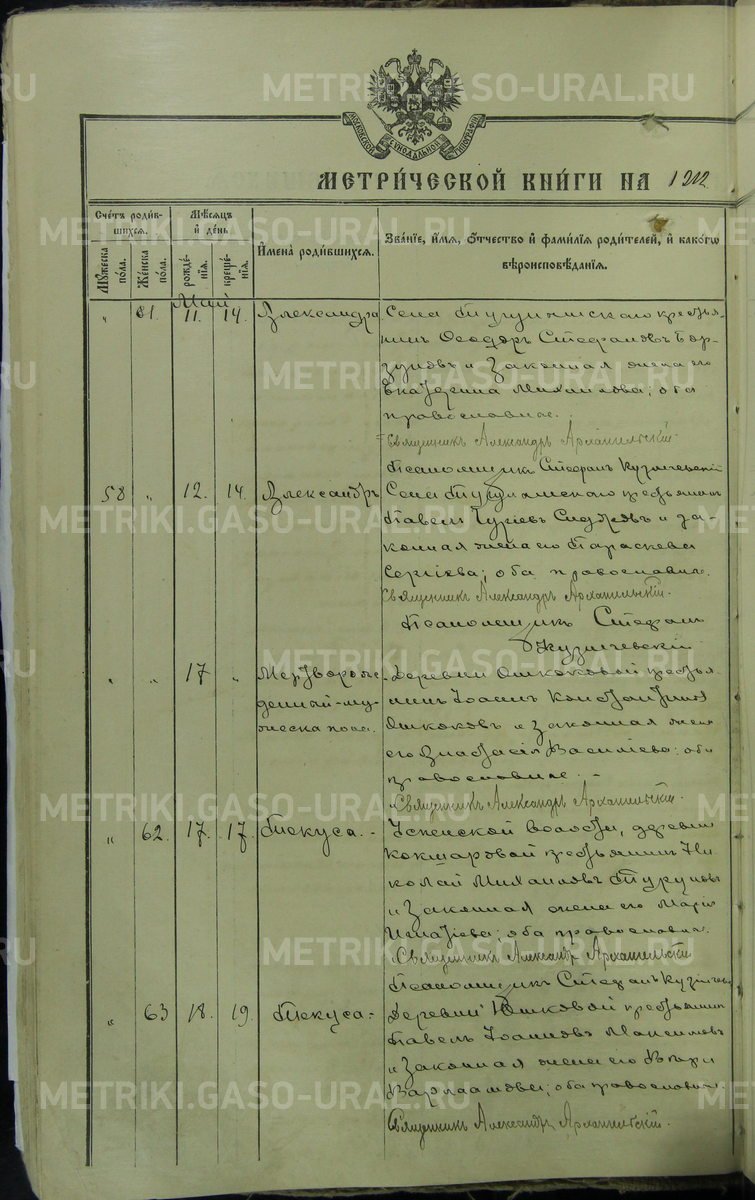 МОСКОВСКОЙ СѴНОДАЛЬНОЙ ТИПОГРАФІИ
МЕТРИ́ЧЕСКОЙ КНИ́ГИ НА 1912
Сче́тъ роди́в-
шихся.
Мѣ́сяцъ
и҆ де́нь
Му́жеска
по́ла.
Же́нска
по́ла.
рожде́-
нїя.
креще́-
нїя.
И҆мена̀ роди́вшихся.
Зва́нїе, и҆́мя, ѻ҆́тчество и҆ фами́лїя роди́телей, и҆ како́гѡ
вѣроисповѣ́данїя.
Май
" 61. 11. 14. Александра
Села крестья-
нинъ Ѳеодоръ Стефановъ Бор-
зуновъ и законная жена его
Екатерина Михаилова; оба
православные.
Священникъ Александръ Архангельскій.
Псаломщикъ Стефанъ
58 " 12. 14. Александръ
Села крестьянинъ
Павелъ Гуріевъ и за-
конная жена его Параскева
Сергіева; оба православные.
Священникъ Александръ Архангельскій
Псаломщикъ Стефанъ
" " 17 " Мертворож-
денный му-
жеска пола.
Деревни крестья-
нинъ Іоаннъ Константиновъ
и законная жена
его Анастасія Василіева; оба
православные.
Священникъ Александръ Архангельскій.
" 62. 17. 17. Гликерія
Успенской волости, деревни
Кокшаровой крестьянинъ Ни-
колай Михаиловъ и законная жена его Марія
Игнатіева; оба православные.
Священникъ Александръ Архангельскій
Псаломщикъ Стефанъ
" 63 18. 19.
Деревни Юшковой крестьянинъ
Павелъ Іоанновъ Максимовъ
и законная жена его
Варлаамова; оба православные.
Священникъ Александръ Архангельскій.
METRIKI.GASO-URAL.RU